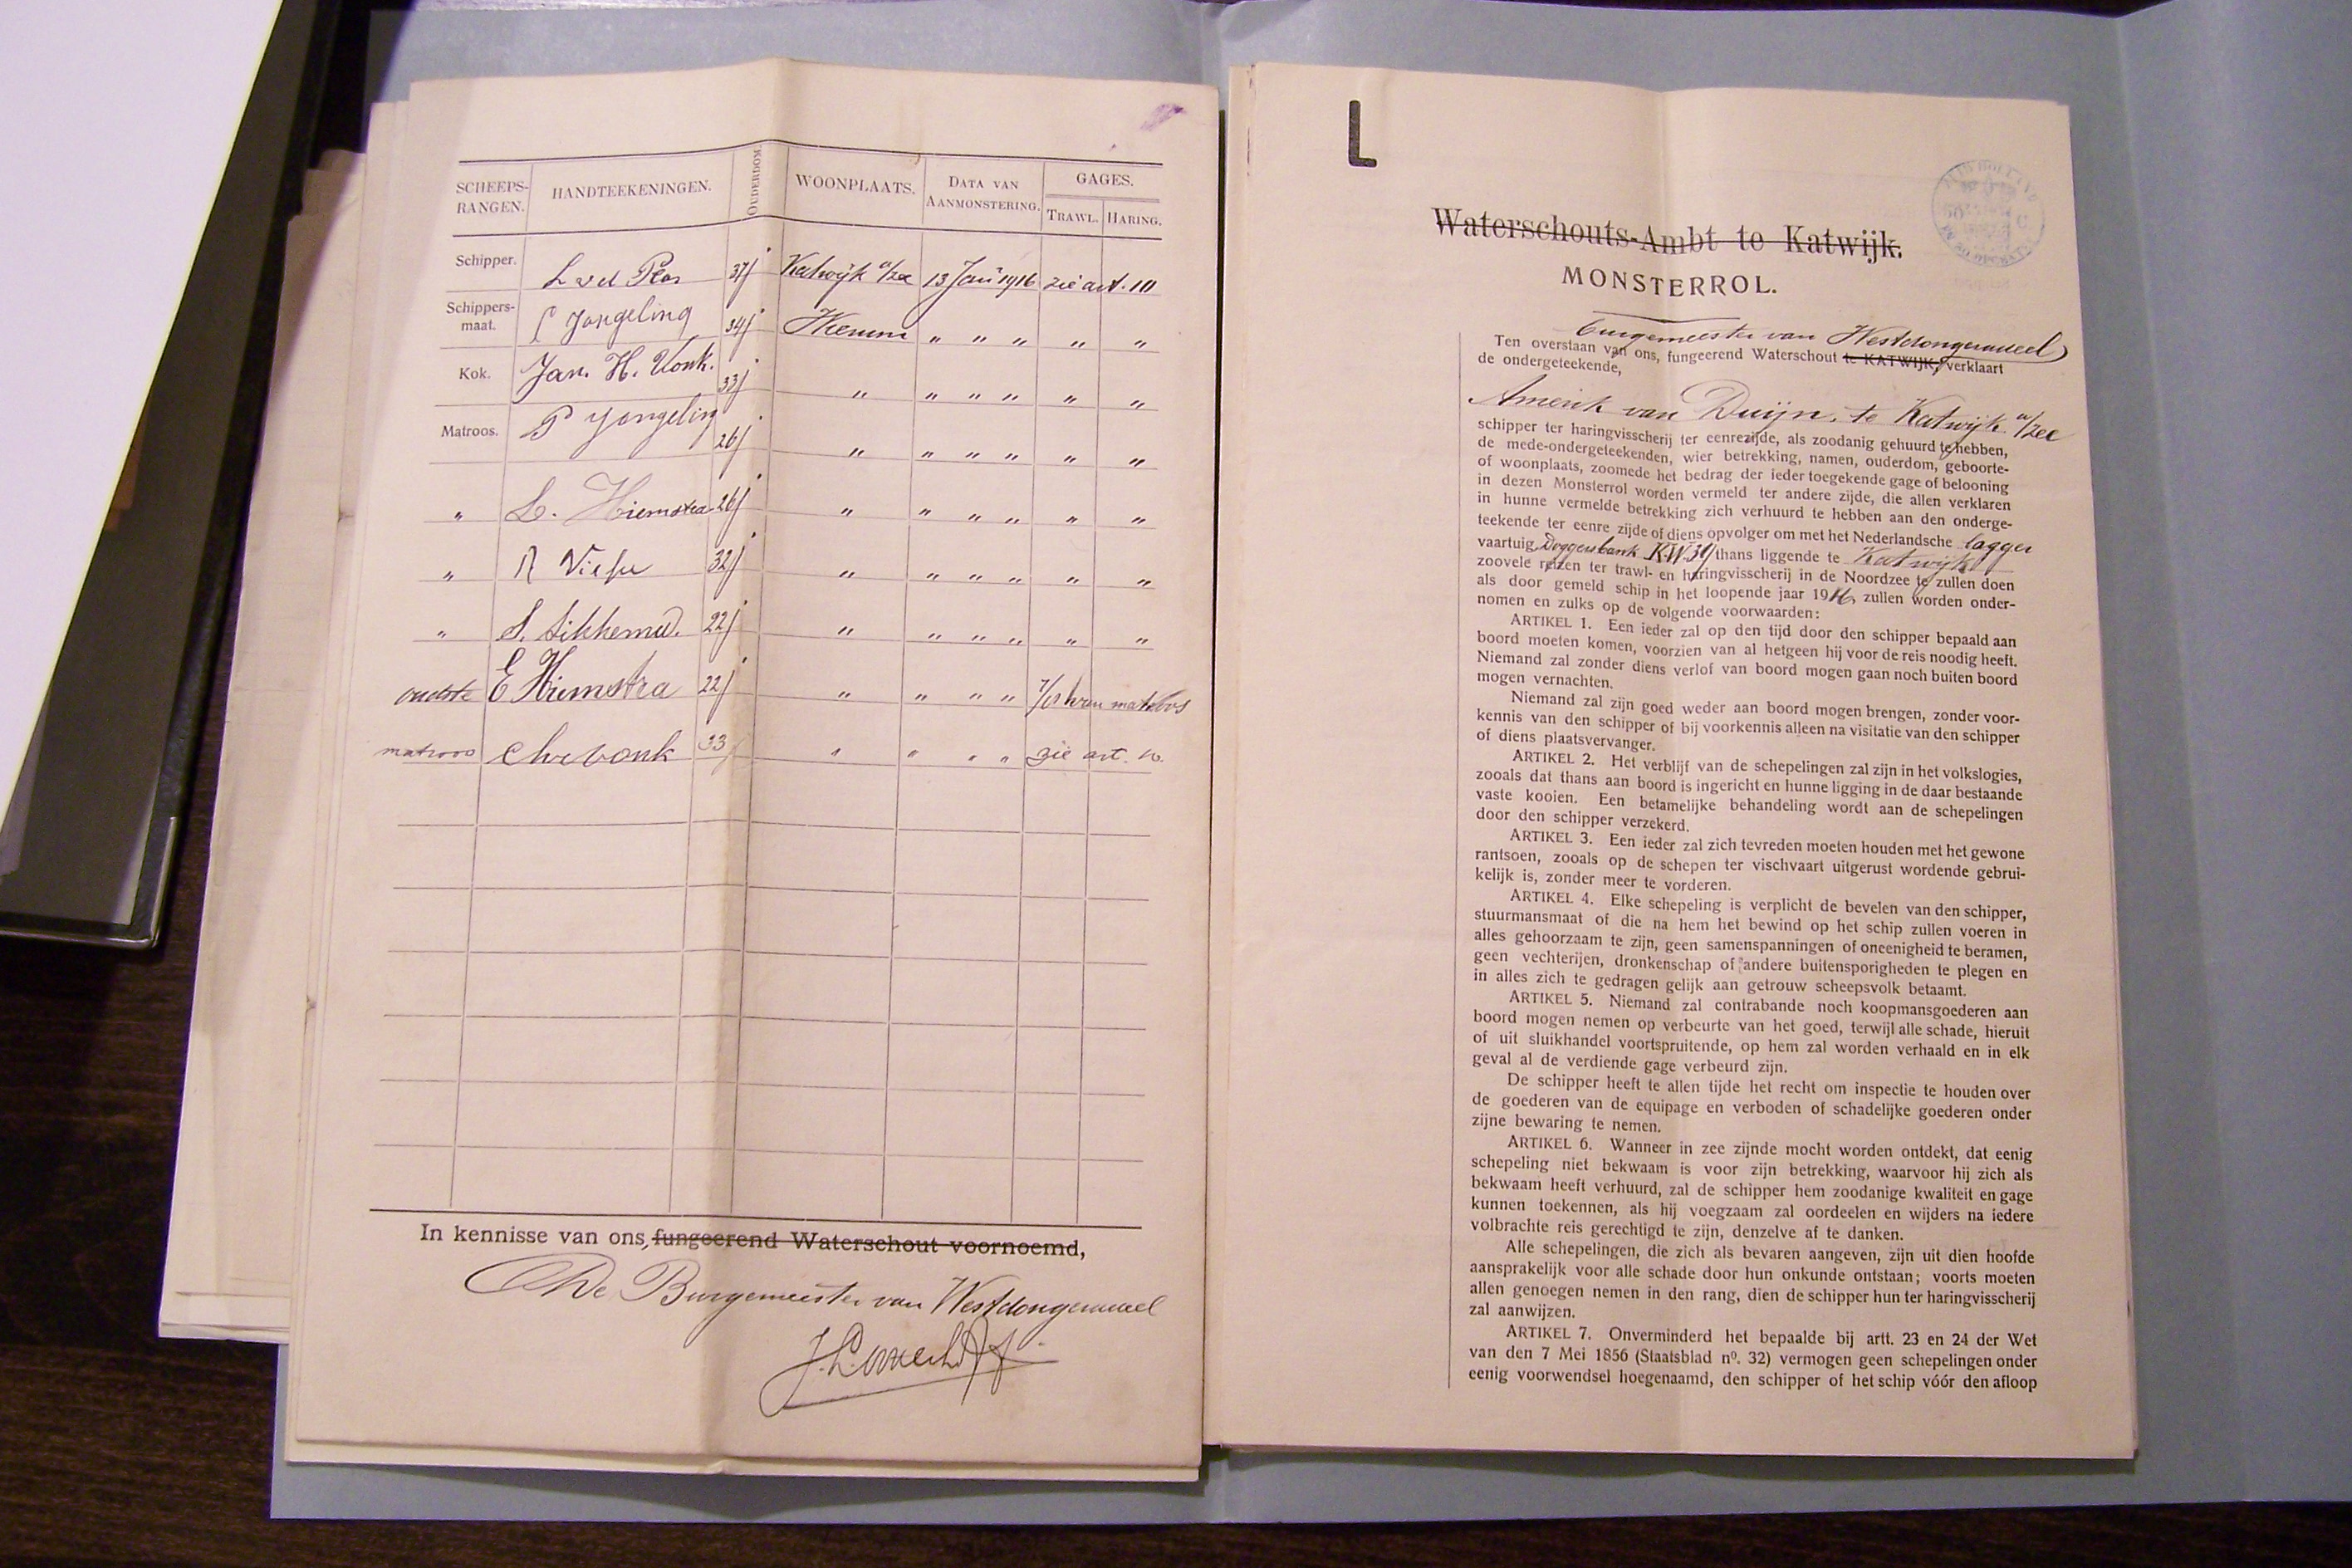 SCHEEPS-RANGEN. HANDTEEKENINGEN. OUDERDOM. WOONPLAATS. DATA VAN AANMONSTERING. GAGES. TRAWL. HARING.
Schipper. L v d Plas 37j Katwijk a/zee 13 Jan 1916 zie art. 10
Schippers-maat. Jongeling 34j Wierum " " " " "
Kok. Jan. H. Vonk. 33j " " " " " "
Matroos. P Jongeling 26j " " " " " "
" L. Hiemstra 26j " " " " " "
" 32j " " " " " "
" S. Sikkema. 22j " " " " " "
oudste E Hiemstra 22j " " " " 7/8 van matroos
matroos Chr vonk 33j " " " " zie art. 10.
In kennisse van ons, fungeerend Waterschout voornoemd,
De Burgemeester van Westdongeradeel
L
Waterschouts-Ambt te Katwijk.
MONSTERROL.
burgemeester van Westdongeradeel
Ten overstaan van ons, fungeerend Waterschout te KATWIJK, verklaart
de ondergeteekende,
Amerik van Duijn, te Katwijk a/zee
schipper ter haringvisscherij ter eenrezijde, als zoodanig gehuurd te hebben,
de mede-ondergeteekenden, wier betrekking, namen, ouderdom, geboorte-
of woonplaats, zoomede het bedrag der ieder toegekende gage of belooning
in dezen Monsterrol worden vermeld ter andere zijde, die allen verklaren
in hunne vermelde betrekking zich verhuurd te hebben aan den onderge-
teekende ter eenre zijde of diens opvolger om met het Nederlandsche logger
vaartuig Doggersbank KW.39 thans liggende te Katwijk
zoovele reizen ter trawl- en haringvisscherij in de Noordzee te zullen doen
als door gemeld schip in het loopende jaar 1916 zullen worden onder-
nomen en zulks op de volgende voorwaarden:
ARTIKEL 1. Een ieder zal op den tijd door den schipper bepaald aan
boord moeten komen, voorzien van al hetgeen hij voor de reis noodig heeft.
Niemand zal zonder diens verlof van boord mogen gaan noch buiten boord
mogen vernachten.
Niemand zal zijn goed weder aan boord mogen brengen, zonder voor-
kennis van den schipper of bij voorkennis alleen na visitatie van den schipper
of diens plaatsvervanger.
ARTIKEL 2. Het verblijf van de schepelingen zal zijn in het volkslogies,
zooals dat thans aan boord is ingericht en hunne ligging in de daar bestaande
vaste kooien. Een betamelijke behandeling wordt aan de schepelingen
door den schipper verzekerd.
ARTIKEL 3. Een ieder zal zich tevreden moeten houden met het gewone
rantsoen, zooals op de schepen ter vischvaart uitgerust wordende gebrui-
kelijk is, zonder meer te vorderen.
ARTIKEL 4. Elke schepeling is verplicht de bevelen van den schipper,
stuurmansmaat of die na hem het bewind op het schip zullen voeren in
alles gehoorzaam te zijn, geen samenspanningen of oneenigheid te beramen,
geen vechterijen, dronkenschap of andere buitensporigheden te plegen en
in alles zich te gedragen gelijk aan getrouw scheepsvolk betaamt.
ARTIKEL 5. Niemand zal contrabande noch koopmansgoederen aan
boord mogen nemen op verbeurte van het goed, terwijl alle schade, hieruit
of uit sluikhandel voortspruitende, op hem zal worden verhaald en in elk
geval al de verdiende gage verbeurd zijn.
De schipper heeft te allen tijde het recht om inspectie te houden over
de goederen van de equipage en verboden of schadelijke goederen onder
zijne bewaring te nemen.
ARTIKEL 6. Wanneer in zee zijnde mocht worden ontdekt, dat eenig
schepeling niet bekwaam is voor zijn betrekking, waarvoor hij zich als
bekwaam heeft verhuurd, zal de schipper hem zoodanige kwaliteit en gage
kunnen toekennen, als hij voegzaam zal oordeelen en wijders na iedere
volbrachte reis gerechtigd te zijn, denzelve af te danken.
Alle schepelingen, die zich als bevaren aangeven, zijn uit dien hoofde
aansprakelijk voor alle schade door hun onkunde ontstaan; voorts moeten
allen genoegen nemen in den rang, dien de schipper hun ter haringvisscherij
zal aanwijzen.
ARTIKEL 7. Onverminderd het bepaalde bij artt. 23 en 24 der Wet
van den 7 Mei 1856 (Staatsblad nº. 32) vermogen geen schepelingen onder
eenig voorwendsel hoegenaamd, den schipper of het schip vóór den afloop